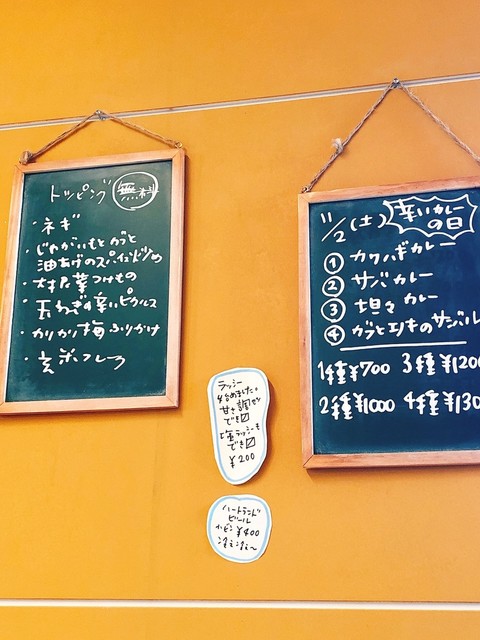 トッピング 無料
・ネギ
・じゃがいもとカブと
油あげのスパイス炒め
・大根葉つけもの
・玉ねぎの辛いピクルス
・カリカリ梅ふりかけ
・玄米フレーク
11/2(土) 辛いカレー
の日
① カワハギカレー
② サバカレー
③ 坦々カレー
④ カブとエノキのサンバル
1種¥700 3種¥120
2種¥1000 4種¥130
ラッシー
始めました。
甘さ調せつ
できます
塩ラッシーも
できます
¥200
ハートランド
ビール
小ビン¥400
冷え冷え〜